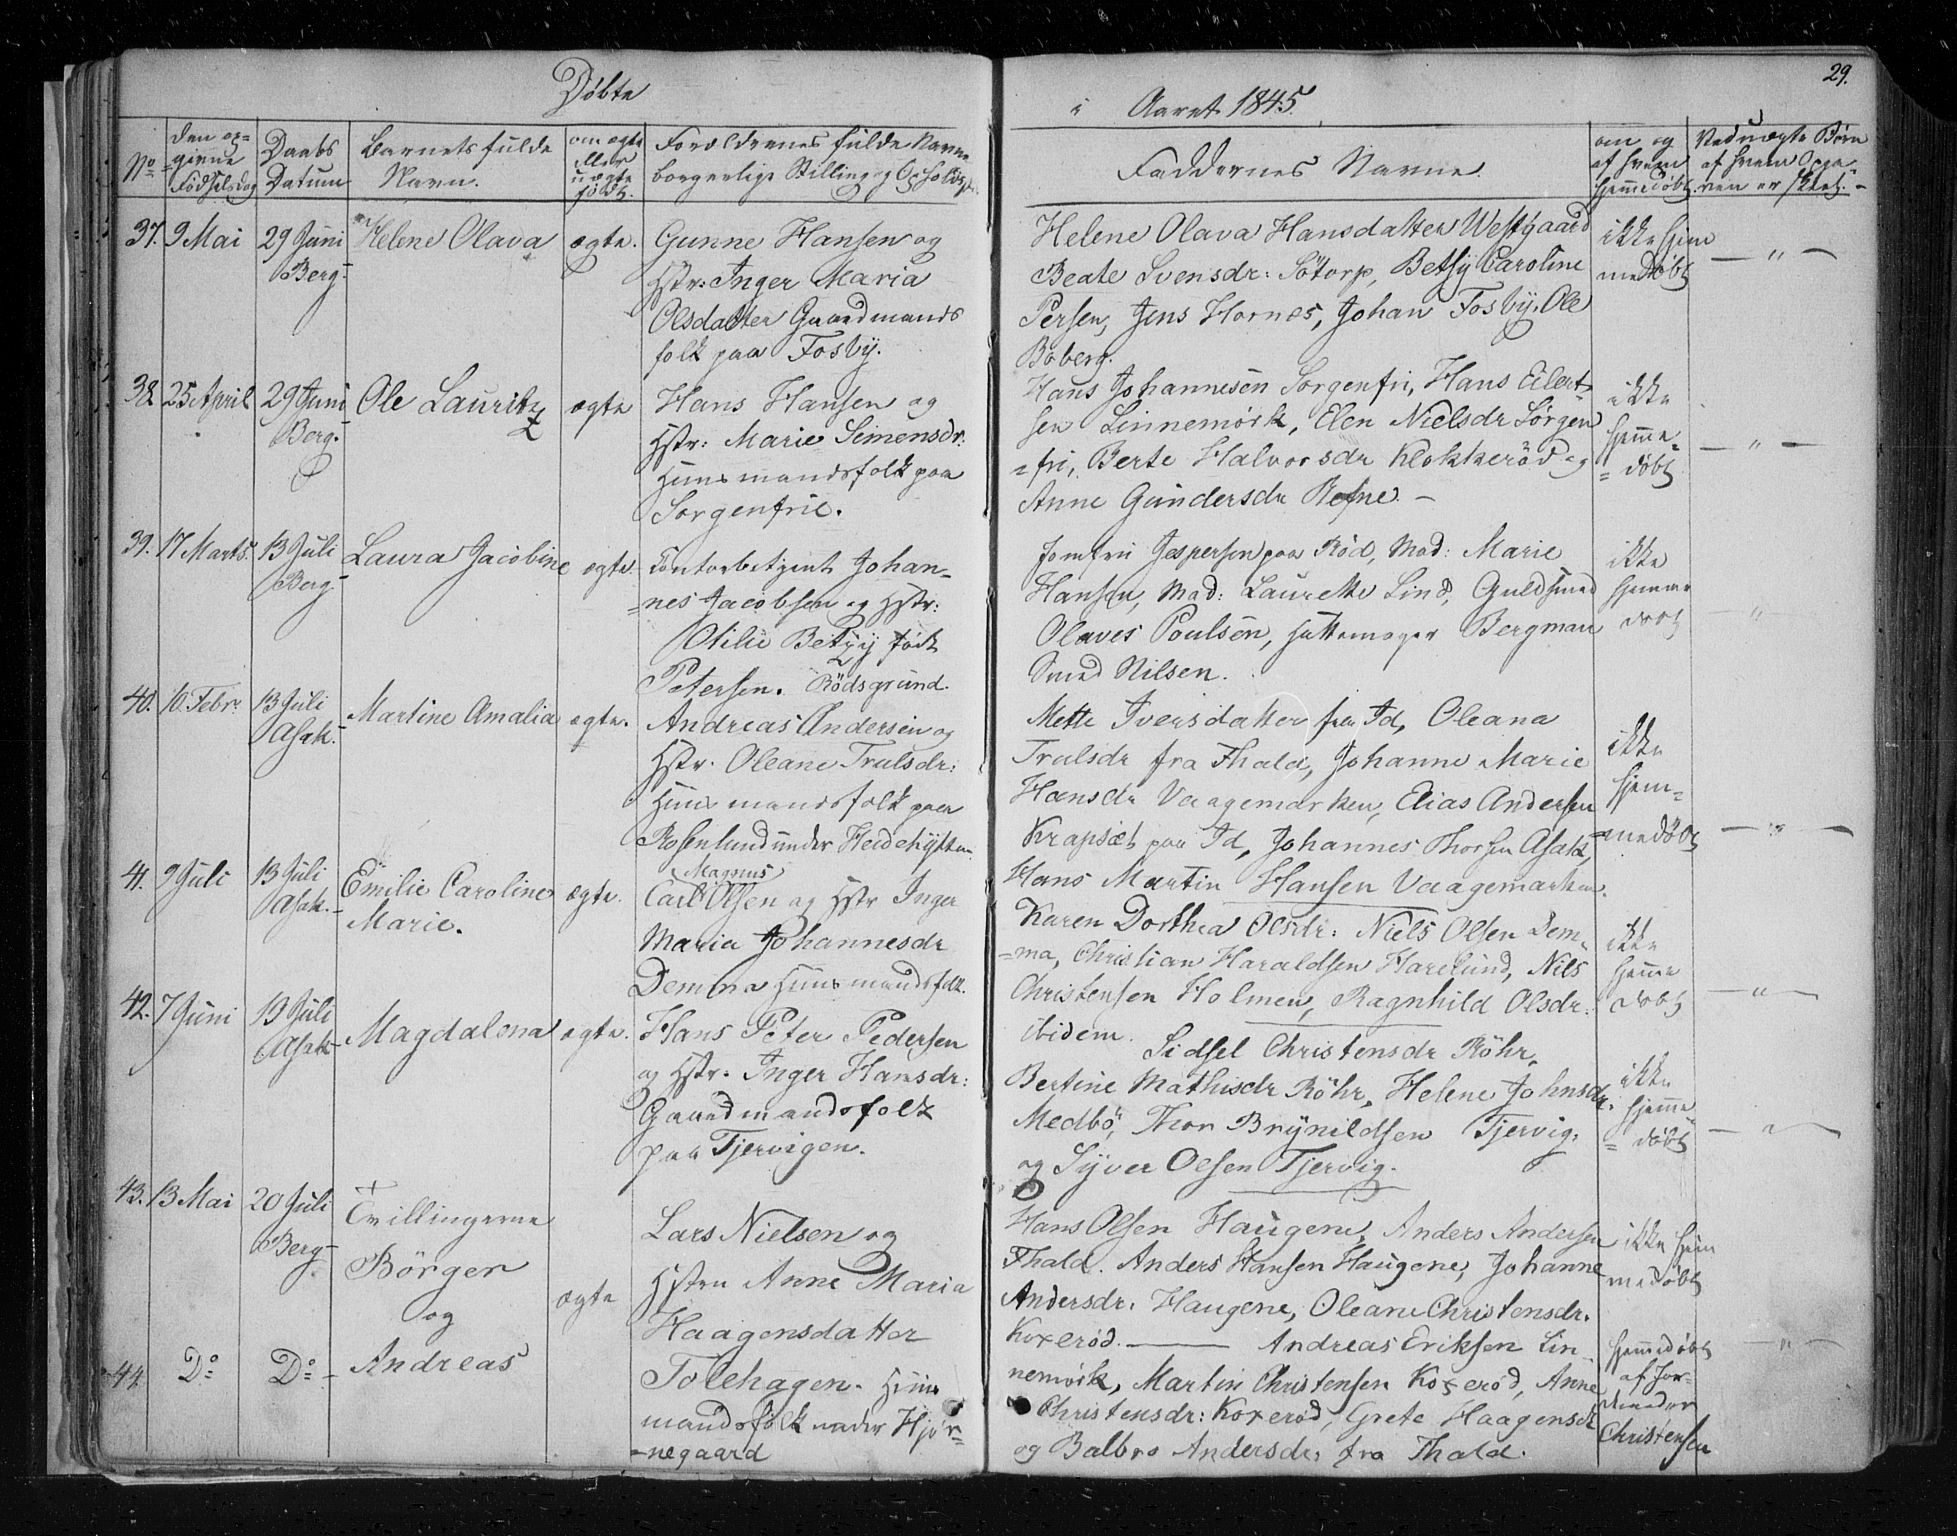 Döbte
i Aaret 1845.
29.
No
den op-
givne
Fødselsdag
Daabs
Datum
Barnets fulde
Navn.
om ægte
eller
uægte
født.
Forældrenes fulde Navne
borgerlige Stilling og Opholds
Faddernes Navne
om og
af hvem
hjemmedøbt.
Ved uægte Børn
af hvem Opga-
ven er skeet.
37. 9 Mai
29 Juni
Berg-
Helene Olava
ægte.
Gunne Hansen og
Hstr: Inger Maria
Olsdatter Gaardmands
folk paa Fosby.
Helene Olava Hansdatter Westgaard
Beate Svensdr: Sötorp, Betsy Caroline
Persen, Jens Hornes, Johan Fosby, Ole
Böberg.
ikke hjem
medøbt
— " —
38. 25 April
29 Juni
Berg.
Ole Lauritz
ægte
Hans Hansen og
Hstr: Marie Simensdr.
Huusmandsfolk paa
Sorgenfrie.
Hans Johannesen Sorgenfri, Hans Eilert-
sen Linnemörk, Elen Nielsdr Sörgen
=fri, Berte Halvorsdr Klokkeröd og
Anne Gundersdr Refne. -
ikke
hjemme=
= døbt
— " —
39. 17 Marts.
13 Juli
Berg-
Laura Jacobine
ægte.
Contorbetjent Johan-
=nes Jacobsen og Hstr:
Otilie Betzy født
Petersen. Rödsgrund.
Jomfru Jespersen paa Röd, Mad: Marie
Hansen, Mad: Laurette Lind, Guldsmed
Olaves Poulsen, Hattemager Bergman
Smed Nilsen.
ikke
hjemme
døbt
— " —
40. 10. Febr.
13 Juli
Asak.-
Martine Amalia
ægte.
Andreas Andersen og
Hstr. Oleane Trulsdr:
Huusmandsfolk paa
Rosenlund under Heidehytten.
Mette Iversdatter fra Id, Oleana
Trulsdr fra Thald, Johanne Marie
Hansdr Vaagemarken, Elias Andersen
Krapsæt paa Id, Johannes Thorsen Asak,
Hans Martin Hansen Vaagemarken.
ikke
hjem=
=medøbt
— " —
41. 9 Juli
13 Juli
Asak.-
Emilie Caroline
Marie.
ægte.
Magnus
Carl Olsen og Hstr Inger
Maria Johannesdr
Demma Huusmandsfolk.
Karen Dorthea Olsdr: Niels Olsen Dem-
=ma, Christian Haraldsen Harelund, Nils
Christensen Holmen, Ragnhild Olsdr:
ibidem.
ikke
hjemme
døbt
— " —
42. 7 Juni
13 Juli
Asak-
Magdalena
ægte.
Hans Peter Pedersen
og Hstr. Inger Hansdr:
Gaardmandsfolk
paa Tjervigen.
Sidsel Christensdr Röhr,
Bertine Mathisdr Röhr, Helene Johnsdr.
Medbö, Thor Brynildsen Tjervig,
og Syver Olsen Tjervig.
ikke
hjemme
= døbt
— " —
43. 13 Mai
20 Juli
Berg-
+
Tvillingerne
Börger
og
ægte
Lars Nielsen og
Hstru Anne Maria
Haagensdatter
Hans Olsen Haugene, Anders Andersen
Thald. Anders Hansen Haugene, Johanne
Andersdr. Haugene, Oleane Christensdr.
Koxeröd.
ikke hjem
medøbt
44. Do
Do -
Andreas
Tolehagen. Huus
mandsfolk under Hjör=
=negaard
Andreas Eriksen Lin-
nemörk, Martin Christensen Koxeröd, Anne
Christensdr: Koxeröd, Grete Haagensdr
og Balbro Andersdr, fra Thald.
hjemmedøbt
af Jor-
demoder
Christensen
— " —